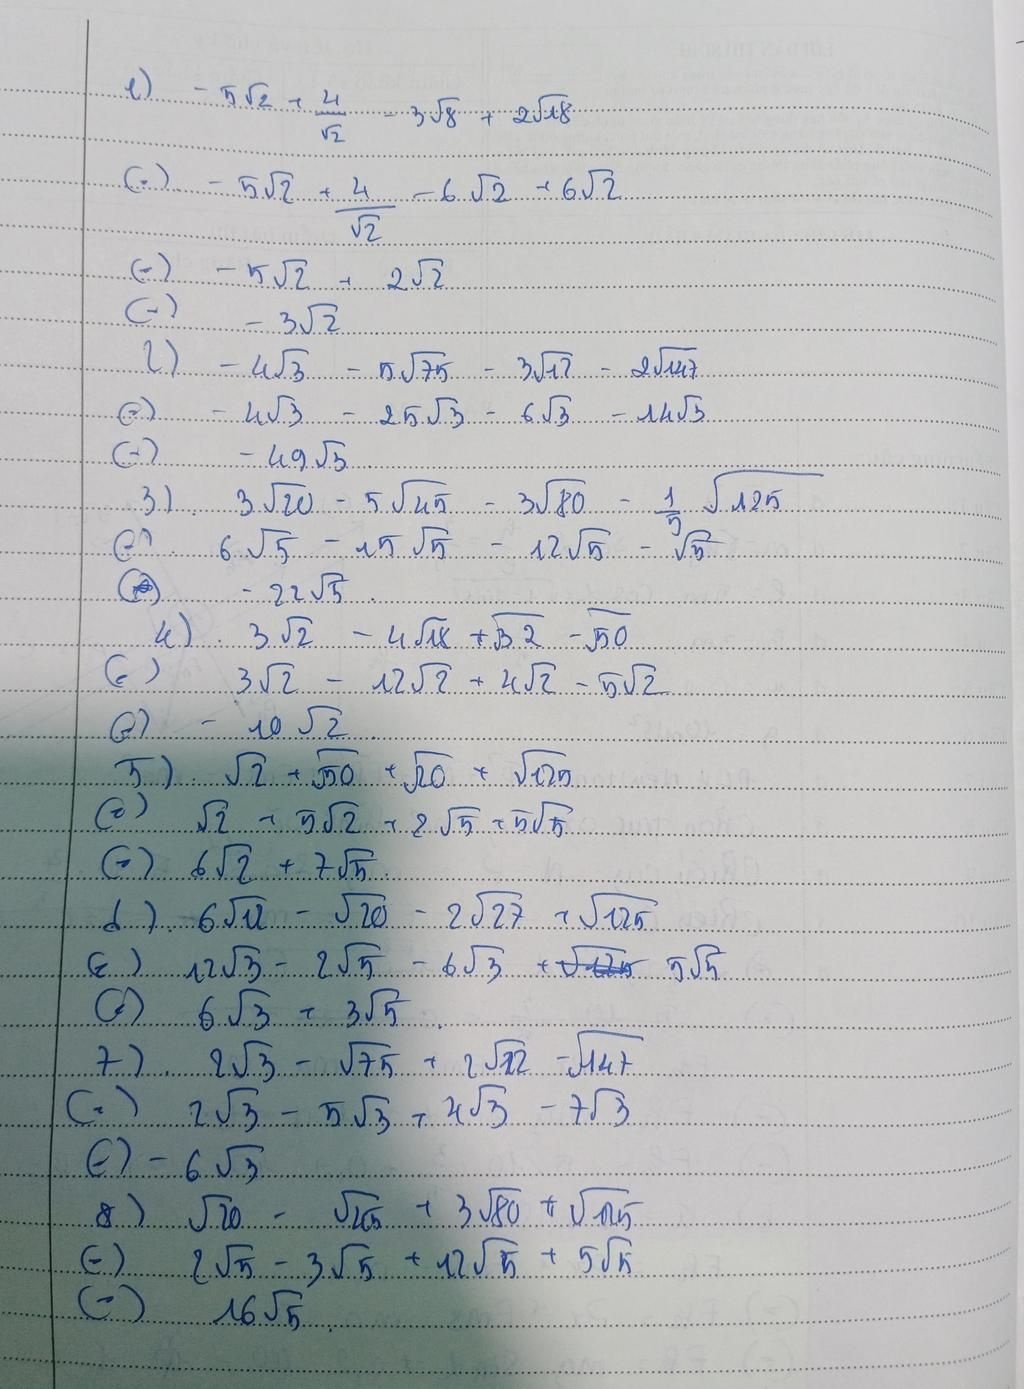 1) - 5√2 + 4/√2 - 3√8 + 2√18
(=) - 5√2 + 4/√2 - 6√2 + 6√2
(=) - 5√2 + 2√2
(=) - 3√2
2) - 4√3 - 5√75 - 3√12 - 2√147
(=) - 4√3 - 25√3 - 6√3 - 14√3
(=) - 49√3
3) 3√20 - 5√45 - 3√80 - 1/5 √125
(=) 6√5 - 15√5 - 12√5 - √5
(=) - 22√5
4) 3√2 - 4√18 + √32 - √50
(=) 3√2 - 12√2 + 4√2 - 5√2
(=) - 10√2
5) √2 + √50 + √20 + √125
(=) √2 + 5√2 + 2√5 + 5√5
(=) 6√2 + 7√5
6) 6√12 - √20 - 2√27 + √125
(=) 12√3 - 2√5 - 6√3 + 5√5
(=) 6√3 + 3√5
7) 2√3 - √75 + 2√12 - √147
(=) 2√3 - 5√3 + 4√3 - 7√3
(=) - 6√3
8) √20 - √45 + 3√80 + √125
(=) 2√5 - 3√5 + 12√5 + 5√5
(=) 16√5